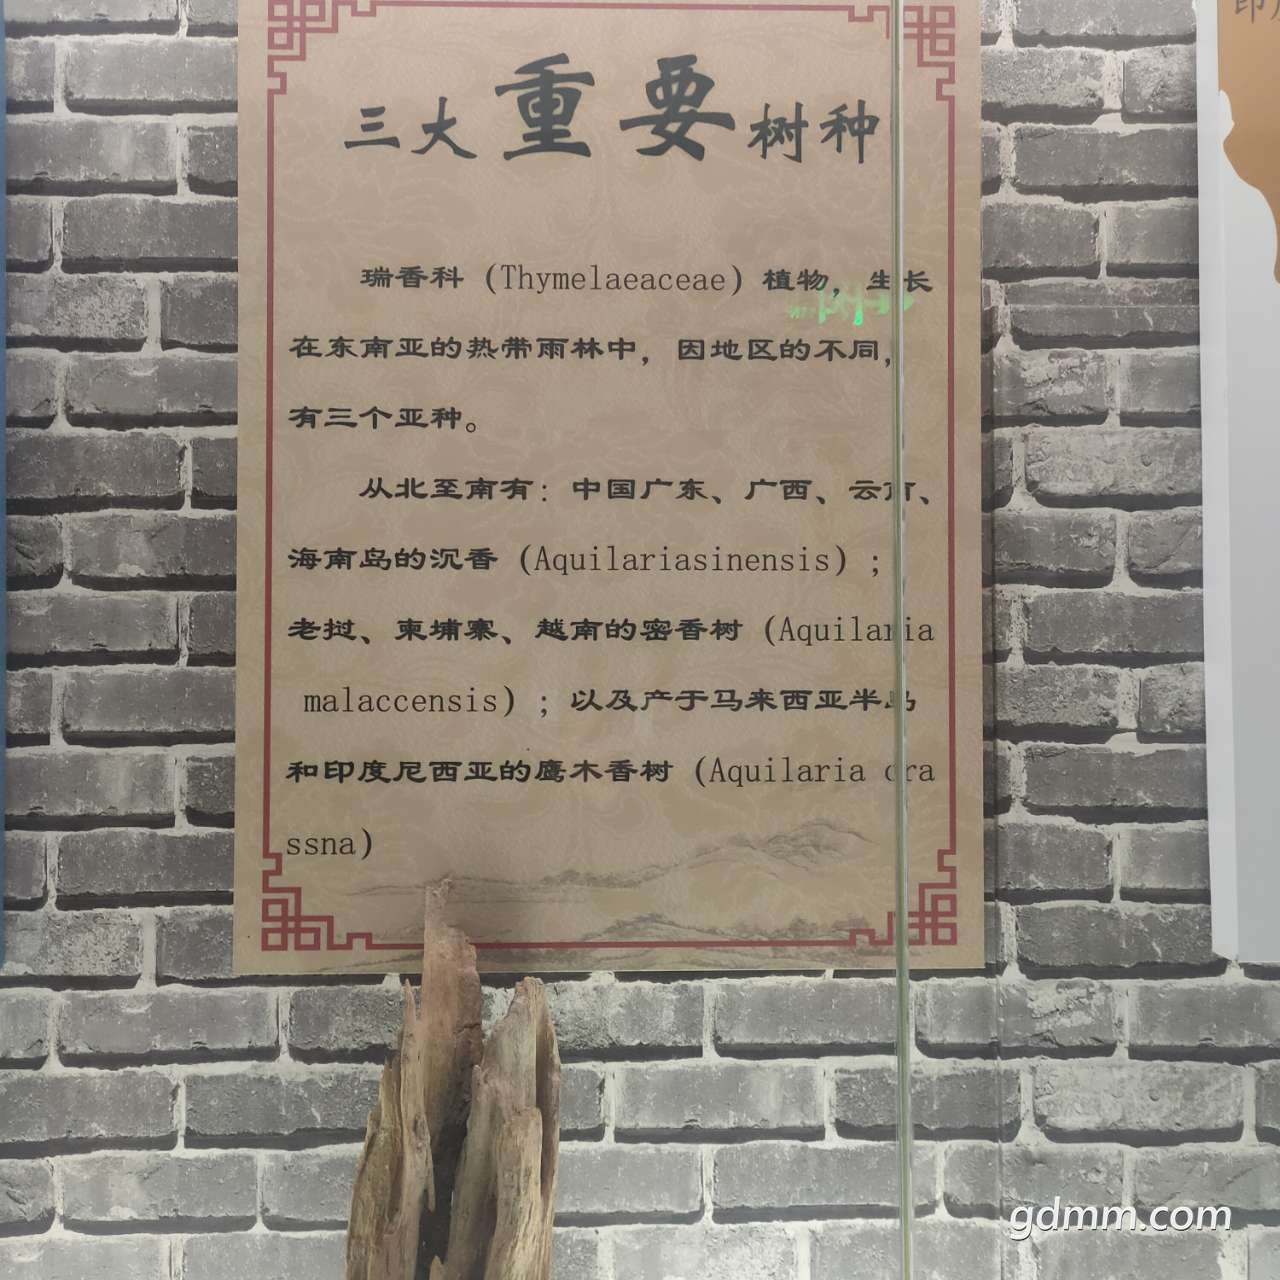 三大重要树种
瑞香科（Thymelaeaceae）植物，生长
在东南亚的热带雨林中，因地区的不同，
有三个亚种。
从北至南有：中国广东、广西、云南、
海南岛的沉香（Aquilariasinensis）；
老挝、柬埔寨、越南的密香树（Aquilaria
malaccensis）；以及产于马来西亚半岛
和印度尼西亚的鹰木香树（Aquilaria cra
ssna）
gdmm.com